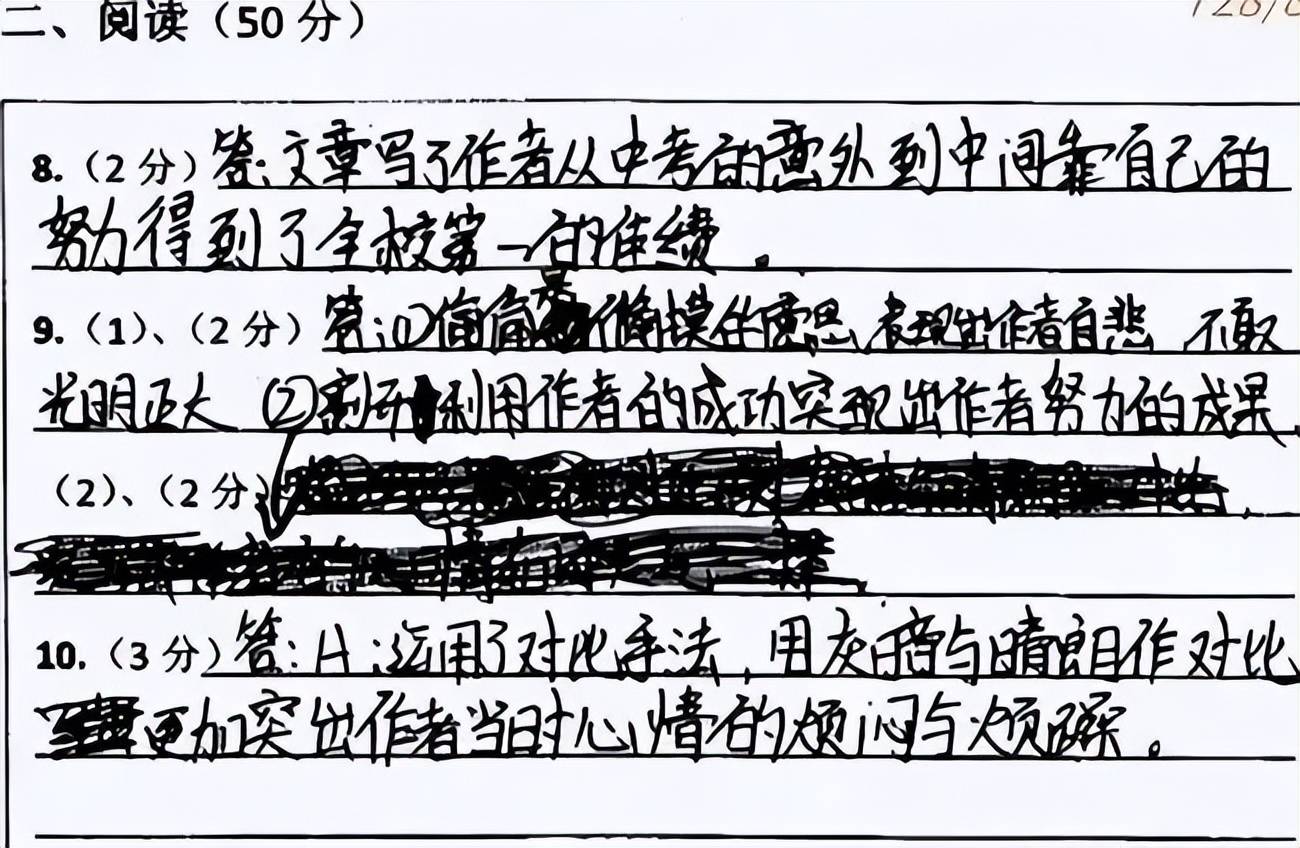 二、阅读（50 分）
8.（2 分）答:文章写了作者从中考的意外到中间靠自己的
努力得到了全校第一的佳绩。
9.（1）、（2 分）答:①偷偷是 表现出作者自悲 不敢
光明正大 ② 利用作者的成功突现出作者努力的成果
（2）、（2 分
10.（3 分）答:A:运用了对比手法,用灰暗与晴朗作对比
更加突出作者当时心情的烦闷与烦躁。